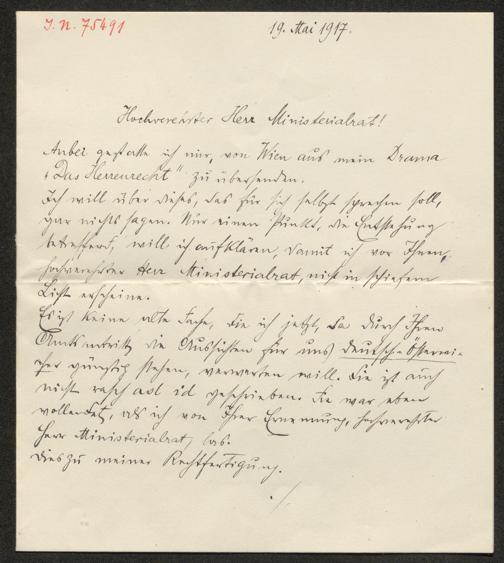 J.N. 75491
19. Mai 1917.
Hochverehrter Herr Ministerialrat!
Anbei gestatte ich mir, von Wien aus mein Drama
„Das Herrenrecht“ zu übersenden.
Ich will über dieses, das für sich selbst sprechen soll,
gar nichts sagen. Nur einen Punkt, die Entstehung
betreffend, will ich aufklären, damit ich vor Ihnen,
hochverehrter Herr Ministerialrat, nicht in schiefem
Licht erscheine.
Es ist keine alte Sache, die ich jetzt, da durch Ihren
Amtsantritt die Aussichten für uns Deutsch-Österrei-
cher günstig stehen, verwerten will. Sie ist auch
nicht rasch ad id geschrieben. Sie war eben
vollendet, als ich von Ihrer Ernennung, hochverehrter
Herr Ministerialrat, las.
Dies zu meiner Rechtfertigung.
./.